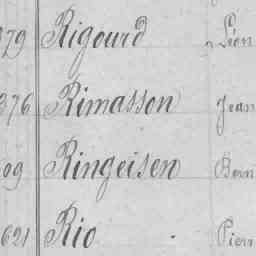 379 Rigourd Léon
376 Rimasson Jean
09 Ringeisen
621 Rio